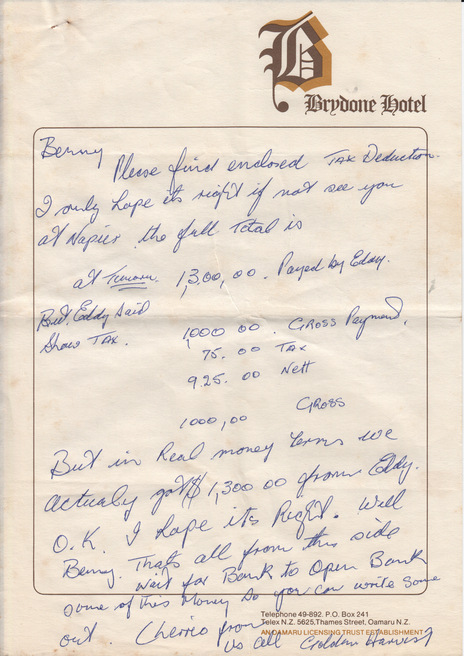 B
Brydone Hotel
Benny
Please find enclosed Tax Deduction.
I only hope its right if not see you
at Napier. the full Total is
at Timaru. 1,300,00. Payed by Eddy.
But, Eddy Said
Show Tax.
1000 00. Gross Payment.
75. 00 Tax
925. 00 Nett
Gross
1000,00
But in Real money terms we
actually got $1,300 00 from Eddy.
O.K. I hope its Right. Well
Benny. Thats all from this side
wait for Bank to Open Bank
some of this Money so you can write some
out Cheerio from
us all Golden Harvest
Telephone 49-892. P.O. Box 241
Telex N.Z. 5625, Thames Street, Oamaru N.Z.
AN OAMARU LICENSING TRUST ESTABLISHMENT